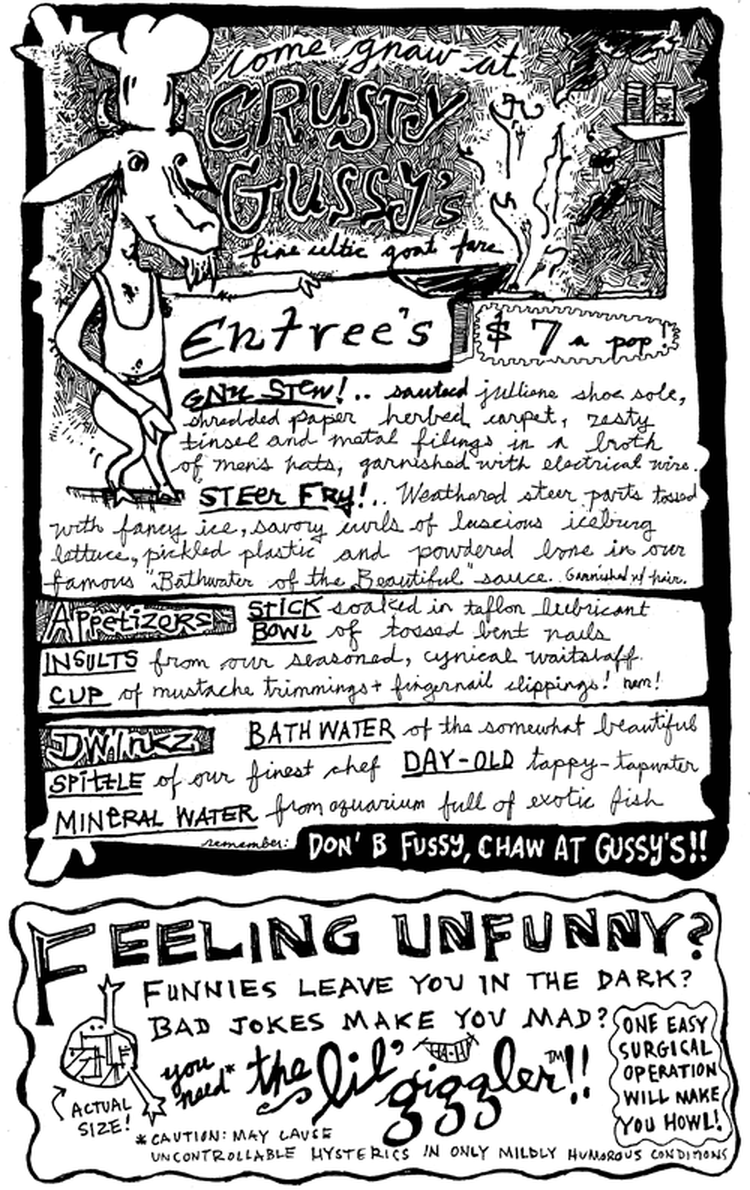 come gnaw at
CRUSTY
GUSSY's
fine celtic goat fare
Entree's
$7 a pop!
GNU STEW!.. sauteed julliane shoe sole,
shredded paper herbed carpet, zesty
tinsel and metal filings in a broth
of men's hats, garnished with electrical wire.
STEER FRY!.. Weathered steer parts tossed
with fancy ice, savory curls of luscious iceburg
lettuce, pickled plastic and powdered bone in our
famous "Bathwater of the Beautiful" sauce.. Garnished w/ hair.
APPetizers
STICK soaked in teflon lubricant
BOWL of tossed bent nails
INSULTS from our seasoned, cynical waitstaff.
CUP of mustache trimmings + fingernail clippings! num!
DWINKZ
BATH WATER of the somewhat beautiful
SPITTLE of our finest chef DAY-OLD tappy-tapwater
MINERAL WATER from aquarium full of exotic fish
remember: DON' B FUSSY, CHAW AT GUSSY'S!!
FEELING UNFUNNY?
FUNNIES LEAVE YOU IN THE DARK?
BAD JOKES MAKE YOU MAD?
you need* the lil' giggler™!!
HA-H
ACTUAL
SIZE!
ONE EASY
SURGICAL
OPERATION
WILL MAKE
YOU HOWL!
*CAUTION: MAY CAUSE
UNCONTROLLABLE HYSTERICS IN ONLY MILDLY HUMOROUS CONDITIONS